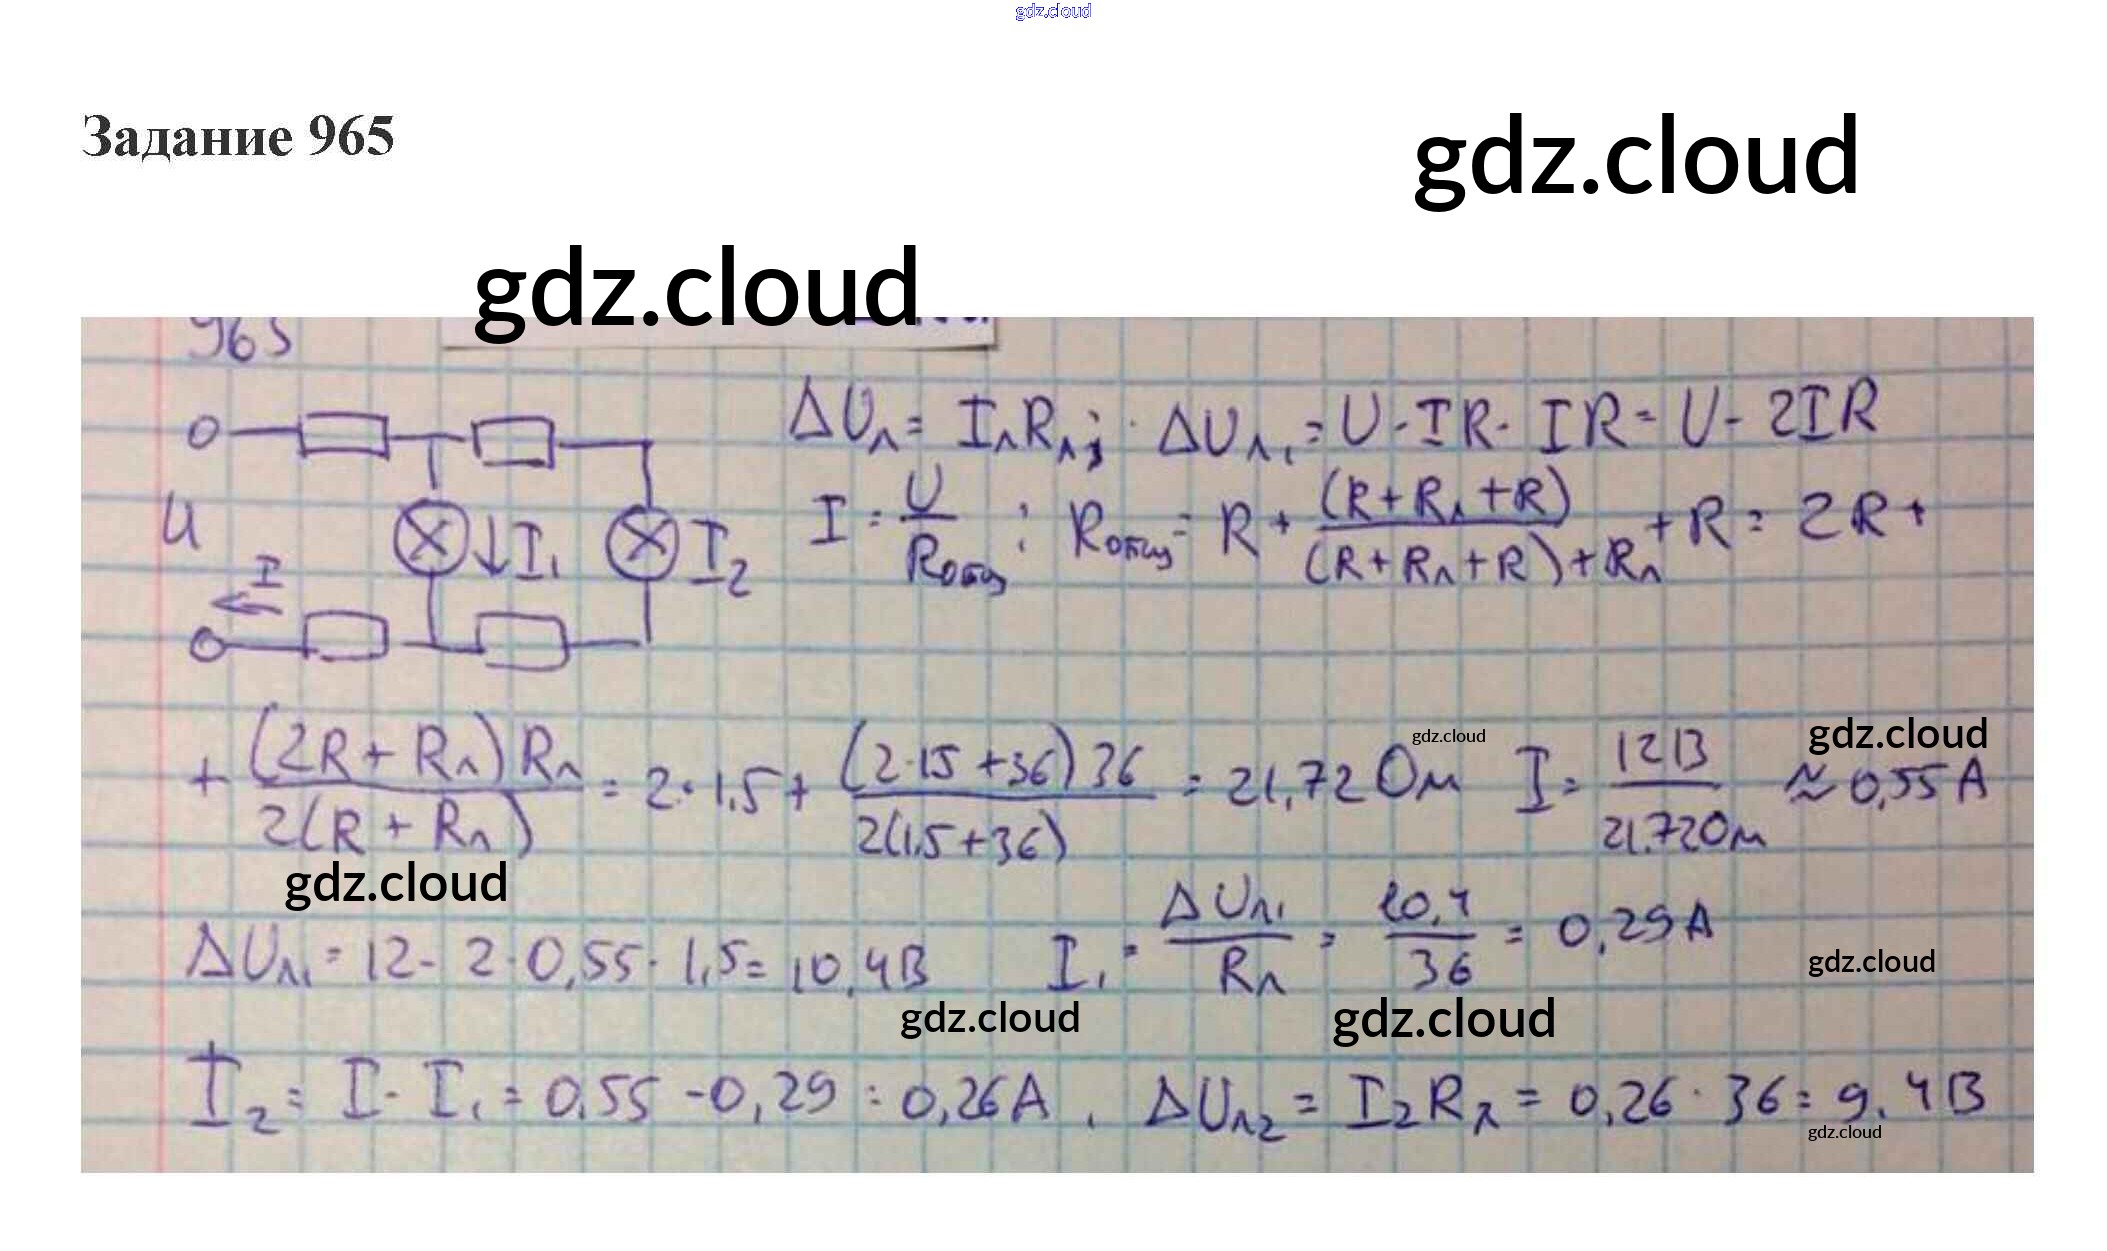 gdz.cloud
Задание 965
gdz.cloud
gdz.cloud
965
ΔUл = IлRл; ΔUл₁ = U - IR - IR = U - 2IR
I = U/Rобщ; Rобщ = R + (R+Rл+R)/((R+Rл+R)+Rл) + R = 2R+
U
I
I₁
I₂
+ (2R+Rл)Rл/2(R+Rл) = 2·1,5+ (2·15+36)36/2(1,5+36) = 21,72 Ом I = 12В/21,72Ом ≈ 0,55 А
gdz.cloud
gdz.cloud
gdz.cloud
ΔUл₁ = 12 - 2·0,55·1,5 = 10,4В I₁ = ΔUл₁/Rл = 10,4/36 = 0,29А
gdz.cloud
gdz.cloud
gdz.cloud
I₂ = I - I₁ = 0,55 - 0,29 = 0,26А, ΔUл₂ = I₂Rл = 0,26·36 = 9,4В
gdz.cloud